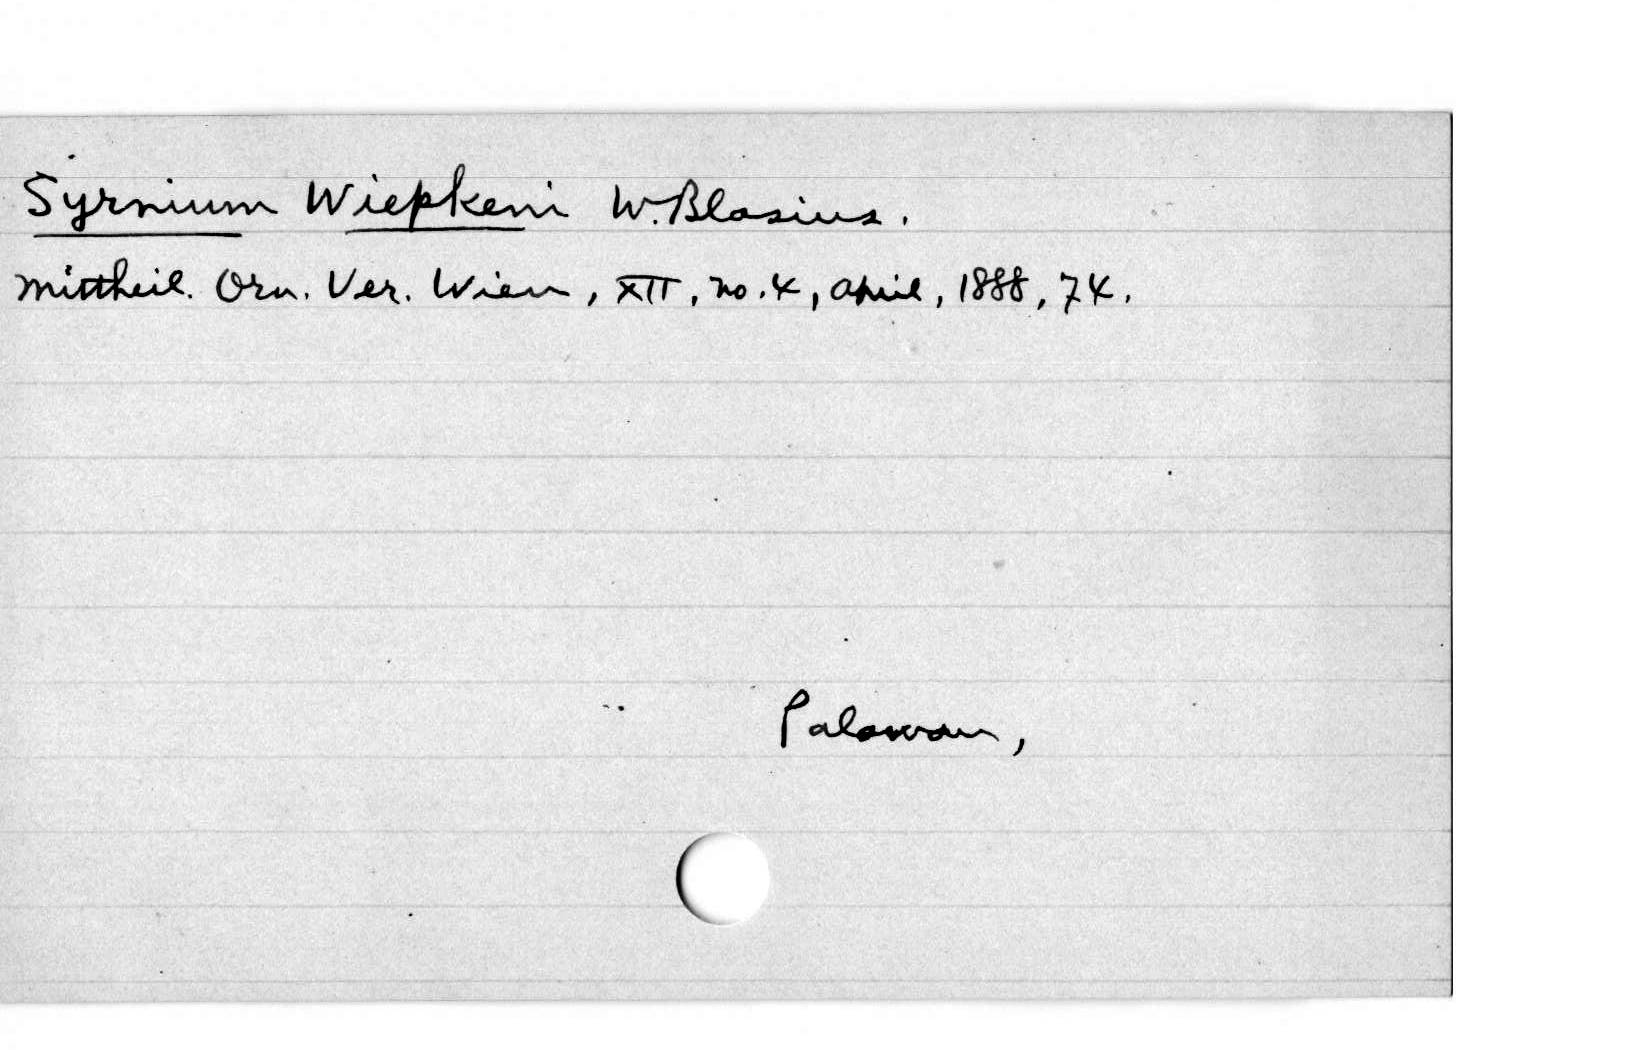 Syrnium Wiepkeni W. Blasius.
Mittheil. Orn. Ver. Wien, XII, no. 4, April, 1888, 74.
Palawan,